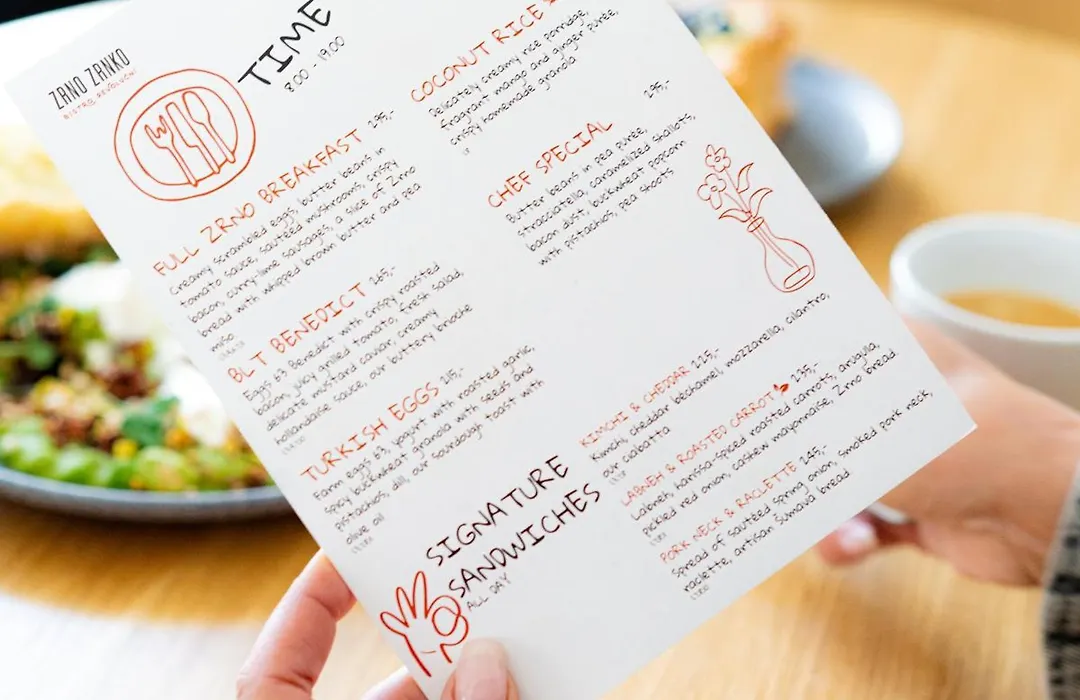 ZRNO ZRNKO
BISTRO REVOLUCNI
TIME
8:00 - 19:00
FULL ZRNO BREAKFAST 295,-
Creamy scrambled eggs, butter beans in
tomato sauce, sautéed mushrooms, crispy
bacon, curry-lime sausages, a slice of Zrno
bread with whipped brown butter and pea
miso
BLT BENEDICT 265,-
Eggs 63 Benedict with crispy roasted
bacon, juicy grilled tomato, fresh salad,
delicate mustard caviar, creamy
hollandaise sauce, our buttery brioche
TURKISH EGGS 215,-
Farm eggs 63, yogurt with roasted garlic,
spicy buckwheat granola with seeds and
pistachios, dill, our sourdough toast with
olive oil
COCONUT RICE
Delicately creamy rice porridge,
fragrant mango and ginger purée,
crispy homemade granola
CHEF SPECIAL 295,-
Butter beans in pea purée,
stracciatella, caramelized shallots,
bacon dust, buckwheat popcorn
with pistachios, pea shoots
SIGNATURE
SANDWICHES
ALL DAY
KIMCHI & CHEDDAR 225,-
Kimchi, cheddar béchamel, mozzarella, cilantro,
our ciabatta
LABNEH & ROASTED CARROT 235,-
Labneh, harissa-spiced roasted carrots, arugula,
pickled red onion, cashew mayonnaise, Zrno bread.
PORK NECK & RACLETTE 245,-
Spread of sautéed spring onion, smoked pork neck,
raclette, artisan Šumava bread